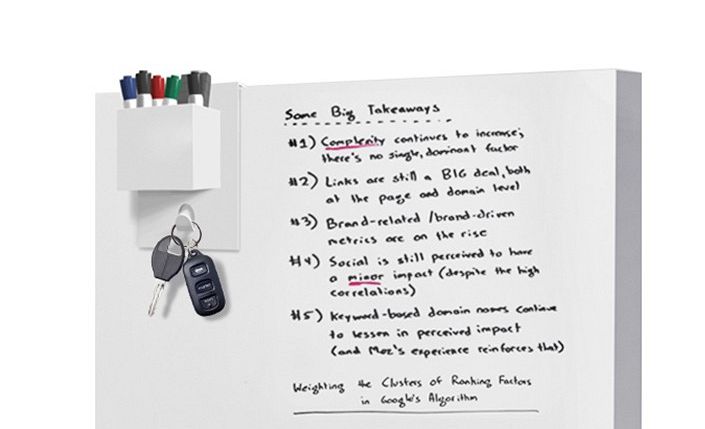 Some Big Takeaways
#1) Complexity continues to increase;
there's no single, dominant factor
#2) Links are still a BIG deal, both
at the page and domain level
#3) Brand-related / brand-driven
metrics are on the rise
#4) Social is still perceived to have
a minor impact (despite the high
correlations)
#5) Keyword-based domain names continue
to lessen in perceived impact
(and Moz's experience reinforces that)
Weighting the Clusters of Ranking Factors
in Google's Algorithm